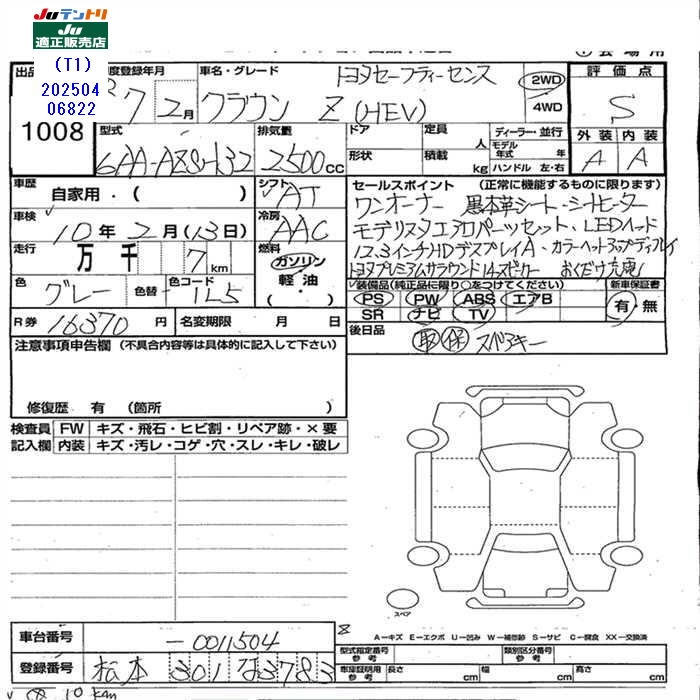 JUテントリ
JU
適正販売店
(T1)
202504
06822
出品
1008
度登録年月
7 2月
車名・グレード
トヨタセーフティーセンス
クラウン Z (HEV)
2WD
4WD
評価点
S
外装 内装
A A
型式
6AA-AZSH32
排気量
2500cc
ドア
形状
定員 人
積載 kg
ディーラー・並行
モデル年式 年
ハンドル 左・右
車歴 自家用・( )
シフト AT
車検 10年2月(13日)
冷房 AAC
走行 万 千 7 km
燃料 ガソリン
軽油
・
色 グレー
色替
色コード 1L5
R券 16370円
名変期限 月 日
セールスポイント (正常に機能するものに限ります)
ワンオーナー 黒本革シート・シートヒーター
モデリスタエアロパーツセット・LEDヘッド
12.3インチHDデスプレイA・カラーヘッドアップディプレイ
トヨタプレミアムサラウンド14スピーカー おくだけ充電
装備品(純正品に限り○をつけてください)
新車保証書
PS PW ABS エアB
SR ナビ TV
有・無
後日品
取 保 スペアキー
注意事項申告欄 (不具合内容等は具体的に記入して下さい)
修復歴 有 (箇所 )
検査員 FW キズ・飛石・ヒビ割・リペア跡・×要
記入欄 内装 キズ・汚レ・コゲ・穴・スレ・キレ・破レ
スペア
A－キズ E－エクボ U－凹み W－補修跡 S－サビ C－腐食 XX－交換済
車台番号 －0011504
登録番号 松本 301 な 3783
型式指定番号
参考
類別区分番号
参考
車庫証明用
参考
長さ cm
幅 cm
高さ cm